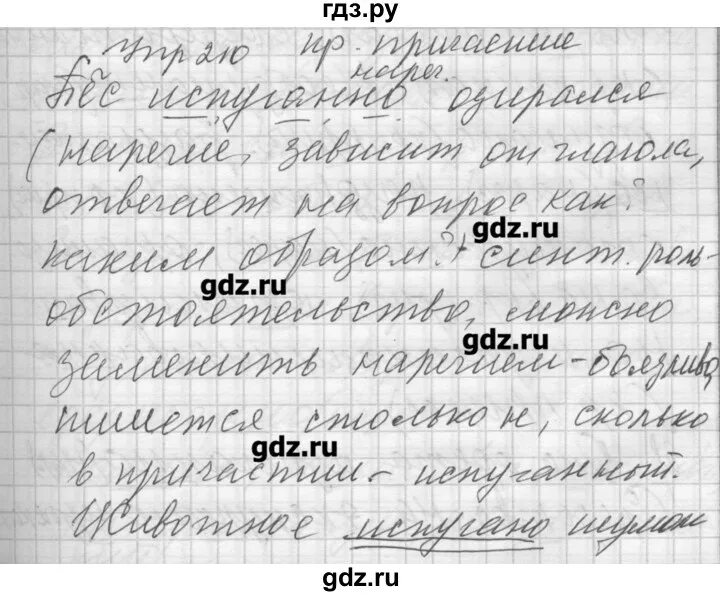 гдз.ру
Упр 210 кр. причастие
нареч.
Пёс испуганно озирался
(наречие, зависит от глагола,
отвечает на вопрос как?
каким образом? + синт. роль-
обстоятельство, можно
заменить наречием - боязливо,
пишется столько н, сколько
в причастии - испуганный.
Животное испугано шумом
gdz.ru
gdz.ru
gdz.ru
gdz.ru
gdz.ru